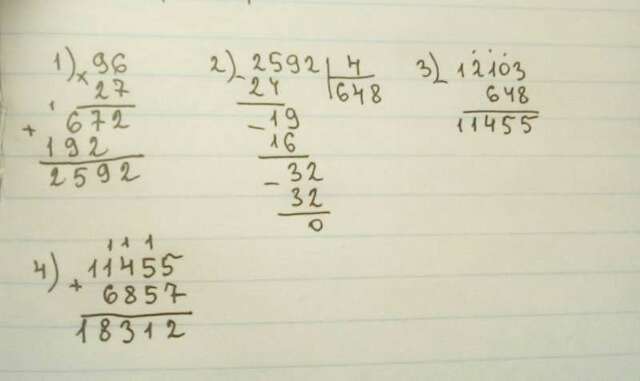 1) × 96
27
1
+ 672
192
2592
2) - 2592 | 4
24 648
- 19
16
- 32
32
0
3) - 12103
648
11455
4) 1 1 1
+ 11455
6857
18312